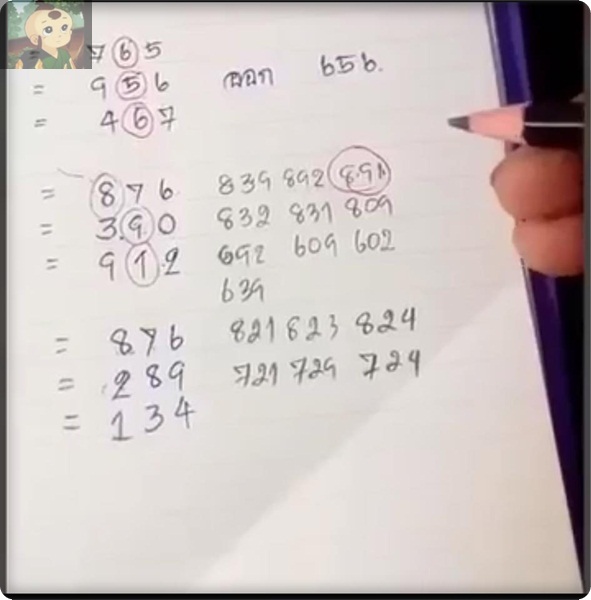 = 765
= 956 ออก 656.
= 467
= 876 839 892 891
= 390 832 831 809
= 912 692 609 602
639
= 876 821 823 824
= 289 721 729 724
= 134